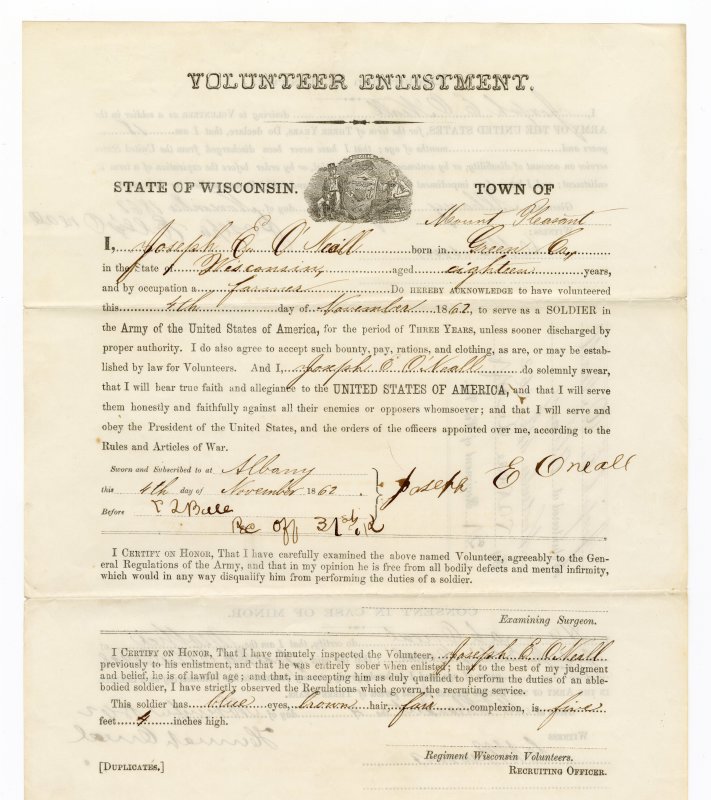 VOLUNTEER ENLISTMENT.
STATE OF WISCONSIN. TOWN OF
Mount Pleasant
I, Joseph E. O'Neall born in Green Co,
in the state of Wisconsin aged eighteen years,
and by occupation a farmer Do HEREBY ACKNOWLEDGE to have volunteered
this 4th day of November 1862, to serve as a SOLDIER in
the Army of the United States of America, for the period of THREE YEARS, unless sooner discharged by
proper authority. I do also agree to accept such bounty, pay, rations, and clothing, as are, or may be estab-
lished by law for Volunteers. And I, Joseph E O'Neall do solemnly swear,
that I will bear true faith and allegiance to the UNITED STATES OF AMERICA, and that I will serve
them honestly and faithfully against all their enemies or opposers whomsoever; and that I will serve and
obey the President of the United States, and the orders of the officers appointed over me, according to the
Rules and Articles of War.
Sworn and Subscribed to at Albany
this 4th day of November 1862. Joseph E Oneall
Before
Rec Off 31st
I CERTIFY ON HONOR, That I have carefully examined the above named Volunteer, agreeably to the Gen-
eral Regulations of the Army, and that in my opinion he is free from all bodily defects and mental infirmity,
which would in any way disqualify him from performing the duties of a soldier.
Examining Surgeon.
I CERTIFY ON HONOR, That I have minutely inspected the Volunteer, Joseph E. O'Neall
previously to his enlistment, and that he was entirely sober when enlisted; that to the best of my judgment
and belief, he is of lawful age; and that, in accepting him as duly qualified to perform the duties of an able-
bodied soldier, I have strictly observed the Regulations which govern the recruiting service.
This soldier has blue eyes, brown hair, fair complexion, is five
feet 4 inches high.
Regiment Wisconsin Volunteers.
[DUPLICATES.] RECRUITING OFFICER.